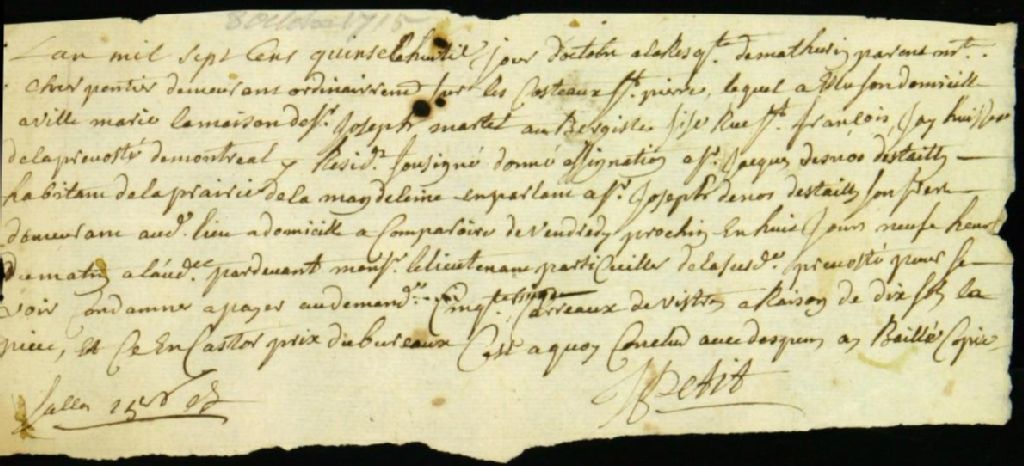 8 Octobre 1715
Lan mil sept Cens quinse le huitie jour doctobre a la Resqte. de mathurin parent mre.
Charpentier demeurans ordinairemend sur les Costeaux st. pierre, lequel a Elu son domicille
a ville marie la maison de sr. Joseph martel au Bergiste sise Rue st. françois, Jay huissier
de la prevosté de montreal y Residt. sousigné donné assignation a sr. Jacques desnos destailly
habitant de la prairie de la magdeleine en parlant a sr. Joseph denos destailly son frere
demeurant aud. lieu a domicille a Comparoire de Vendredy prochin En huit Jours neufe heures
du matin a laud.ce pardevant monsr. le lieutenant particuillier de la susd. prevosté pour se
voir Condamner a payer au demandr. Cinqt. Carreaux de vistres a Raison de dix sols la
piece, Et Ce En Castor prix du bureaux Cest a quoy Conclud avec despens ay Baillé Copie
Petit